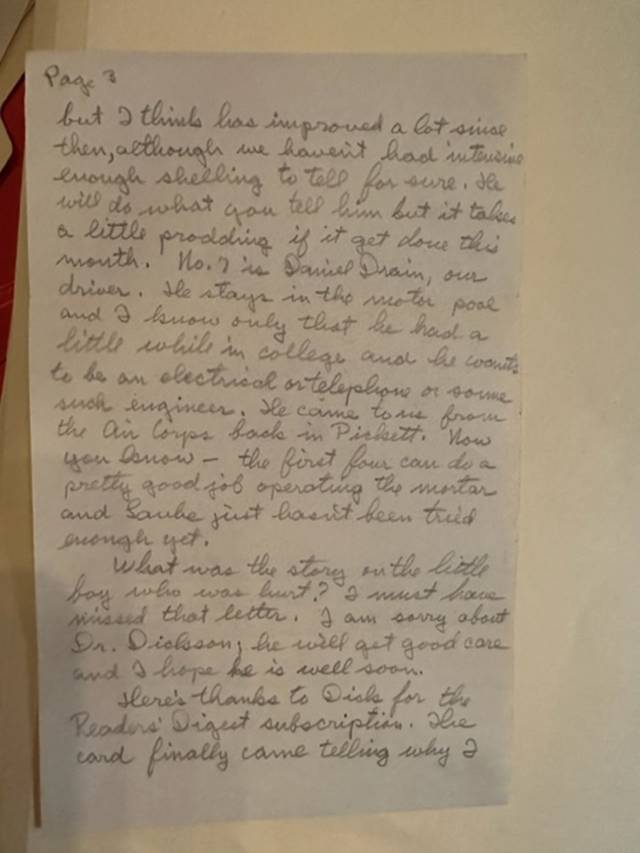 Page 3
but I think has improved a lot since
then, although we haven't had intensive
enough shelling to tell for sure. He
will do what you tell him but it takes
a little prodding if it get done this
month. No. 7 is Daniel Drain, our
driver. He stays in the motor pool
and I know only that he had a
little while in college and he wants
to be an electrical or telephone or some
such engineer. He came to us from
the Air Corps back in Pickett. Now
you know – the first four can do a
pretty good job operating the mortar
and just hasn't been tried
enough yet.
What was the story on the little
boy who was hurt? I must have
missed that letter. I am sorry about
Dr. Dickson; he will get good care
and I hope he is well soon.
Here's thanks to Dick for the
Readers' Digest subscription. The
card finally came telling why I